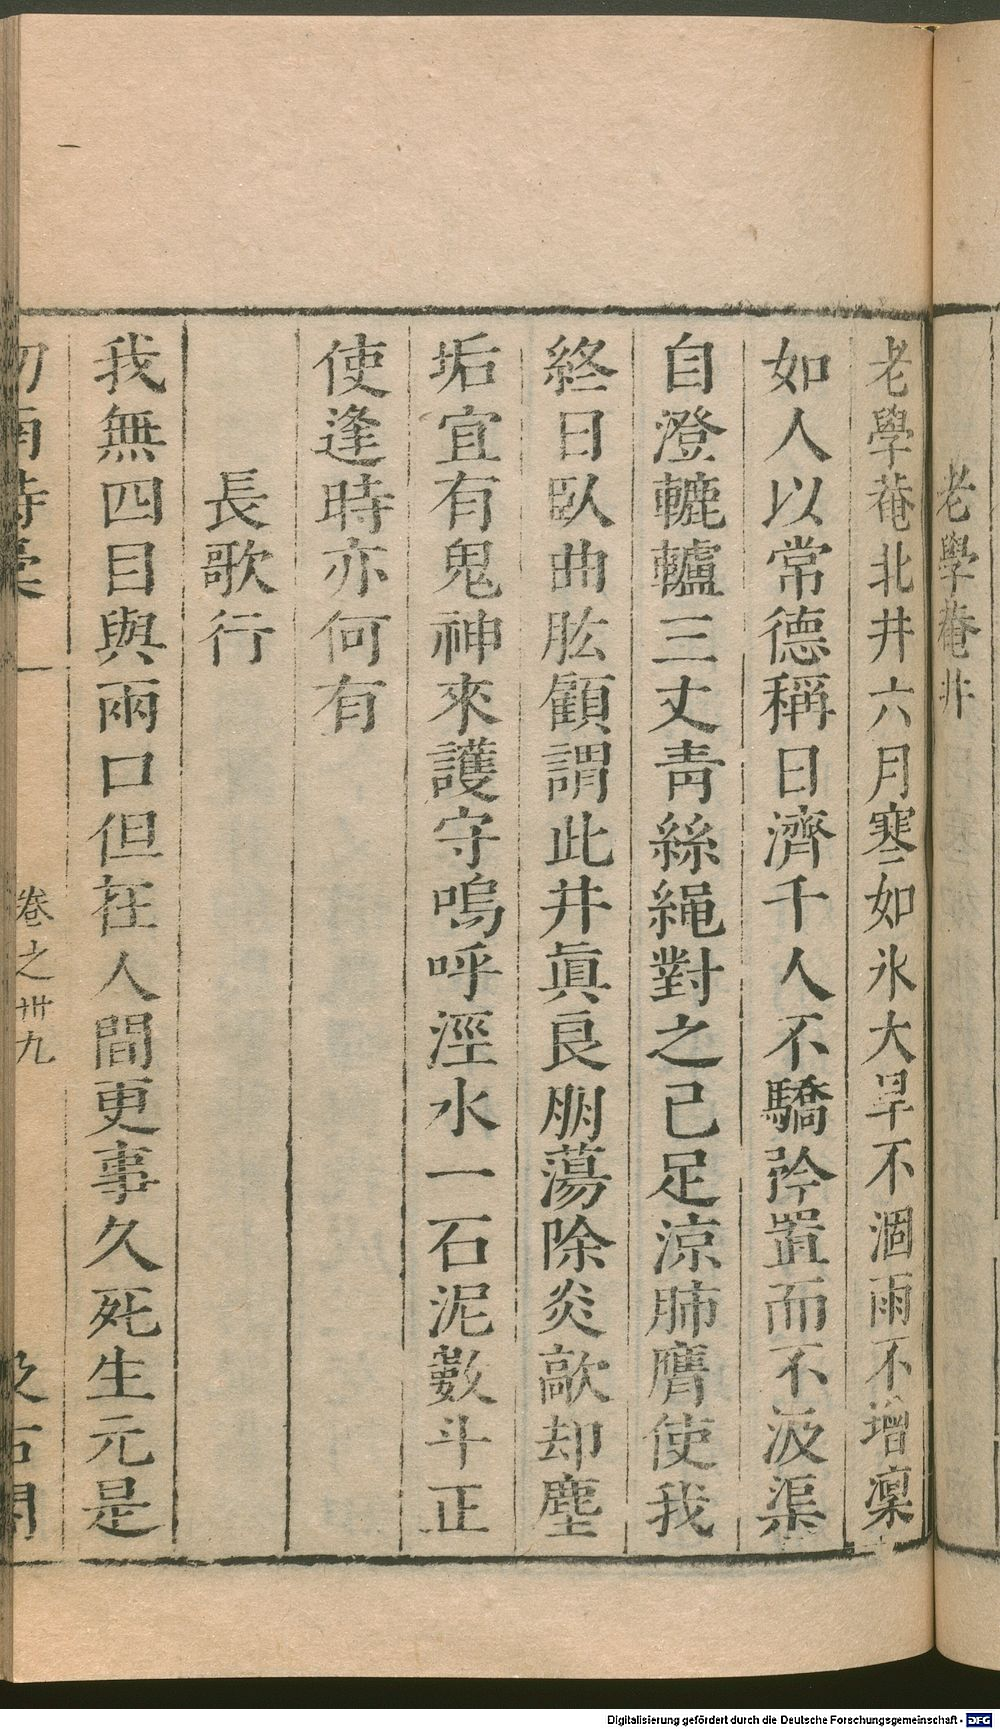 老學菴井
老學菴北井六月寒如氷大旱不涸雨不增凜
如人以常德稱日濟千人不驕矜置而不汲渠
自澄轆轤三丈青絲繩對之已足涼肺膺使我
終日臥曲肱顧謂此井眞良朋蕩除炎歊却塵
垢宜有鬼神來護守嗚呼涇水一石泥數斗正
使逢時亦何有
長歌行
我無四目與兩口但在人間更事久死生元是
劍南詩藁 一 卷之卅九 汲古閣
Digitalisierung gefördert durch die Deutsche Forschungsgemeinschaft - DFG